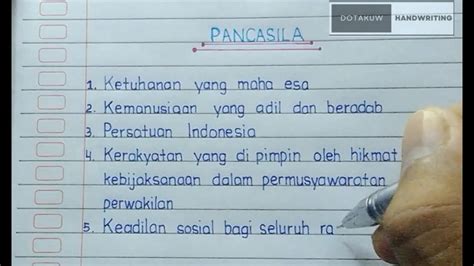 DOTAKUW HANDWRITING
PANCASILA
1. Ketuhanan yang maha esa
2. Kemanusiaan yang adil dan beradab
3. Persatuan Indonesia
4. Kerakyatan yang di pimpin oleh hikmat
kebijaksanaan dalam permusyawaratan
perwakilan
5. Keadilan sosial bagi seluruh ra